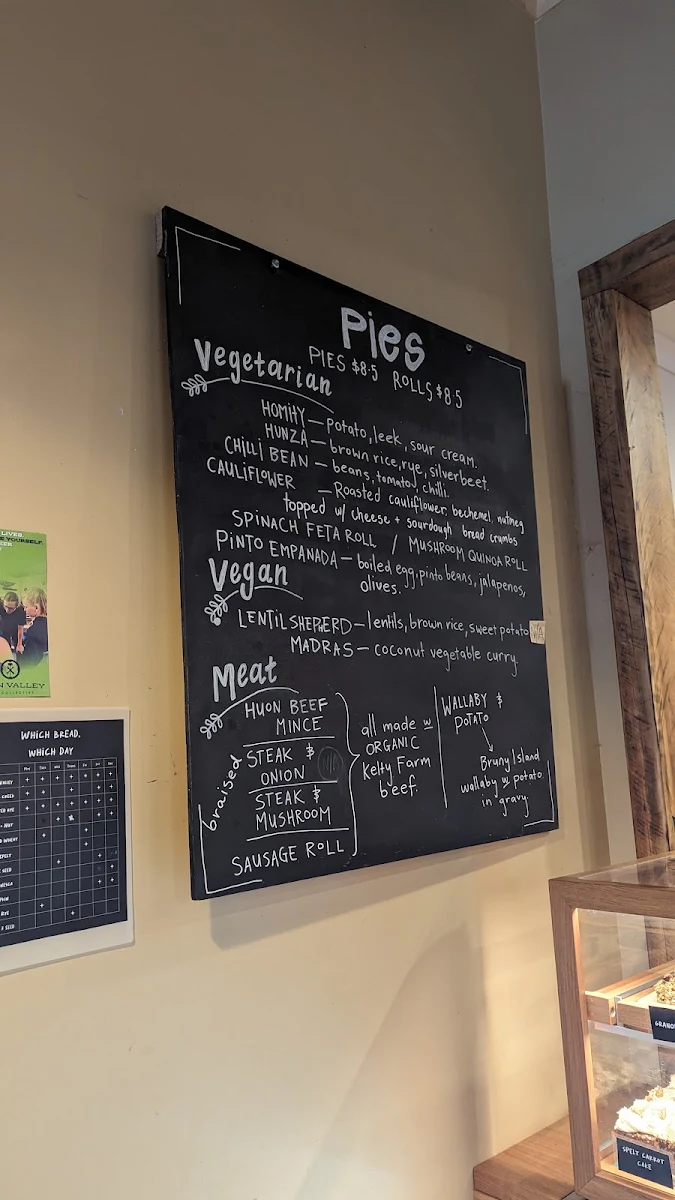 Pies
PIES $8.5 ROLLS $8.5
Vegetarian
HOMITY — Potato, leek, sour cream.
HUNZA — brown rice, rye, silverbeet.
CHILLI BEAN — beans, tomato, chilli.
CAULIFLOWER — Roasted cauliflower, bechemel, nutmeg
topped w/ cheese + sourdough bread crumbs
SPINACH FETA ROLL / MUSHROOM QUINOA ROLL
PINTO EMPANADA — boiled egg, pinto beans, jalapenos,
olives.
Vegan
LENTIL SHEPHERD — lentils, brown rice, sweet potato
MADRAS — coconut vegetable curry
Meat
HUON BEEF
MINCE
braised
STEAK &
ONION
STEAK &
MUSHROOM
SAUSAGE ROLL
all made w
ORGANIC
Kelty Farm
beef.
WALLABY &
POTATO
Bruny Island
wallaby w potato
in gravy.
LIVES.
YOURSELF.
N VALLEY
WHICH BREAD.
WHICH DAY
SPELT CARROT
CAKE